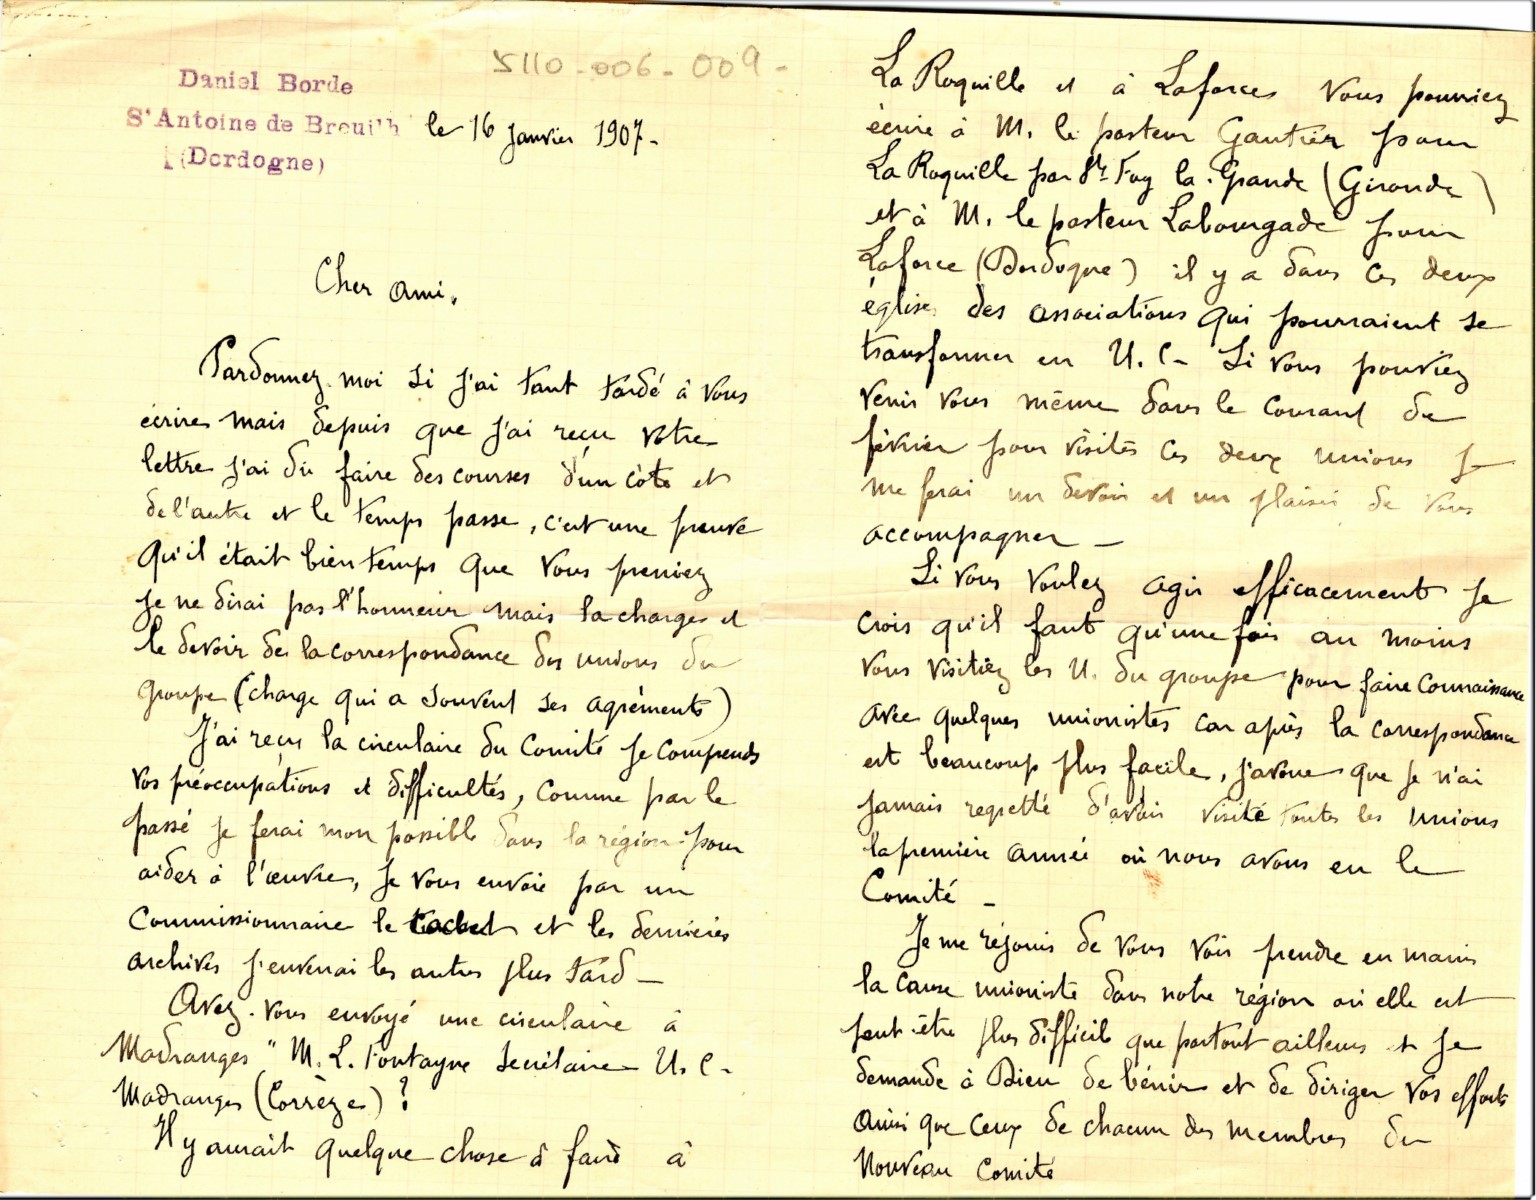 5110-006-009-
Daniel Borde
St Antoine de Breuilh
(Dordogne)
le 16 janvier 1907-
Cher ami,
Pardonnez-moi si j'ai tant tardé à vous
écrire mais depuis que j'ai reçu votre
lettre j'ai dû faire des courses d'un côté et
de l'autre et le temps passe, c'est une preuve
qu'il était bien temps que vous preniez
je ne dirai pas l'honneur mais la charge et
le devoir de la correspondance des unions du
groupe (charge qui a souvent ses agréments)
J'ai reçu la circulaire du Comité je comprends
vos préoccupations et difficultés, comme par le
passé je ferai mon possible dans la région pour
aider à l'œuvre, je vous envoie par un
commissionnaire le cachet et les dernières
archives j'enverrai les autres plus tard -
Avez-vous envoyé une circulaire à
Madranges "M. L. Fontayne secrétaire U. C-
Madranges (Corrèze) ?
Il y aurait quelque chose à faire à
La Roquille et à Laforce vous pourriez
écrire à M. le pasteur Gautier pour
La Roquille par Ste Foy la-Grande (Gironde)
et à M. le pasteur Labourgade pour
Laforce (Dordogne) il y a dans ces deux
églises des associations qui pourraient se
transformer en U. C- Si vous pouviez
venir vous même dans le courant de
février pour visiter ces deux unions je
me ferai un devoir et un plaisir de vous
accompagner -
Si vous voulez agir efficacement je
crois qu'il faut qu'une fois au moins
vous visitiez les U. du groupe pour faire connaissance
avec quelques unionistes car après la correspondance
est beaucoup plus facile, j'avoue que je n'ai
jamais regretté d'avoir visité toutes les unions
la première année où nous avons eu le
Comité -
Je me réjouis de vous voir prendre en mains
la cause unioniste dans notre région où elle est
peut-être plus difficile que partout ailleurs et je
demande à Dieu de bénir et de diriger vos efforts
ainsi que ceux de chacun des membres du
nouveau comité